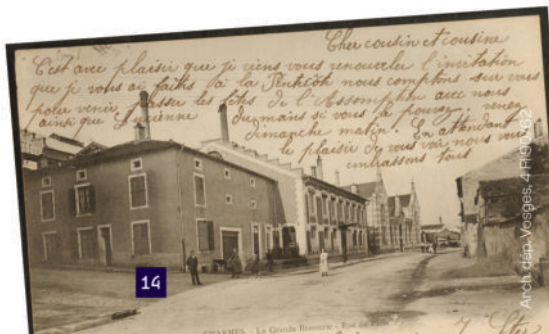 Cher cousin et cousine
C'est avec plaisir que je viens vous renouveler l'invitation
que je vous ai faites à la Pentecôte nous comptons sur vous
pour venir passer les fêtes de l'Assomption avec nous
ainsi que Lucienne du mains si vous le pouvez. venez
dimanche matin. En attendant
le plaisir de vous voir nous vous
embrassons tous
14
CHARMES - La Grande Brasserie - Rue
Arch. dép. Vosges, 4 Fi